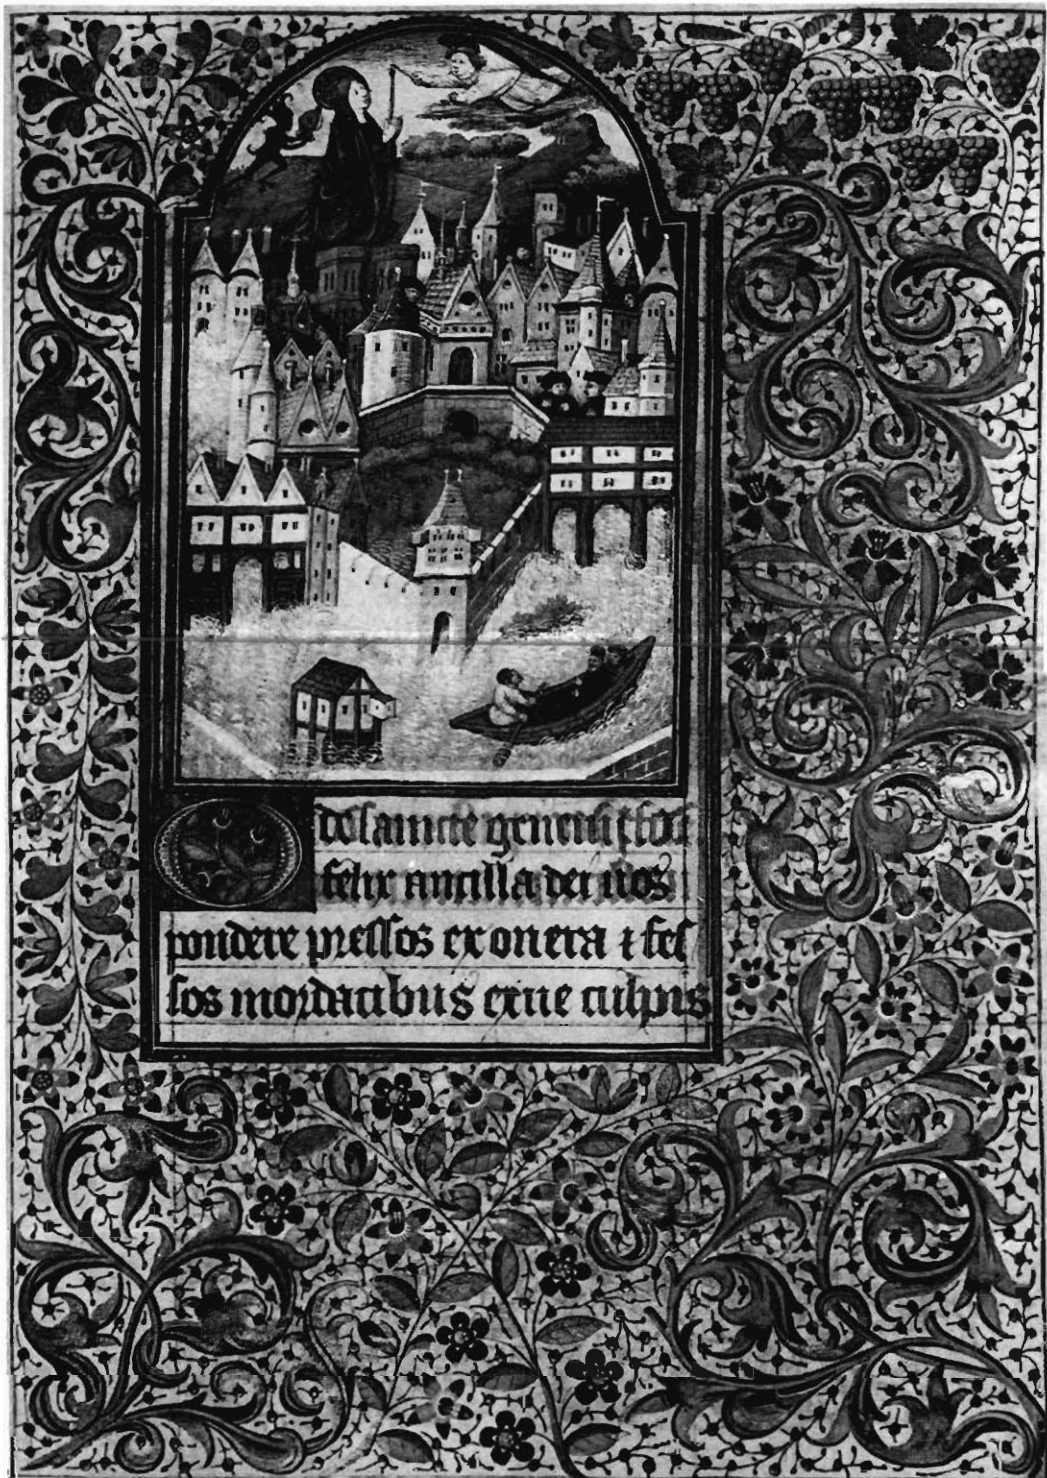 O de saincte
felix ancilla dei nos
pondere pressos exonera ⁊ fes
sos mordacibus exue culpis